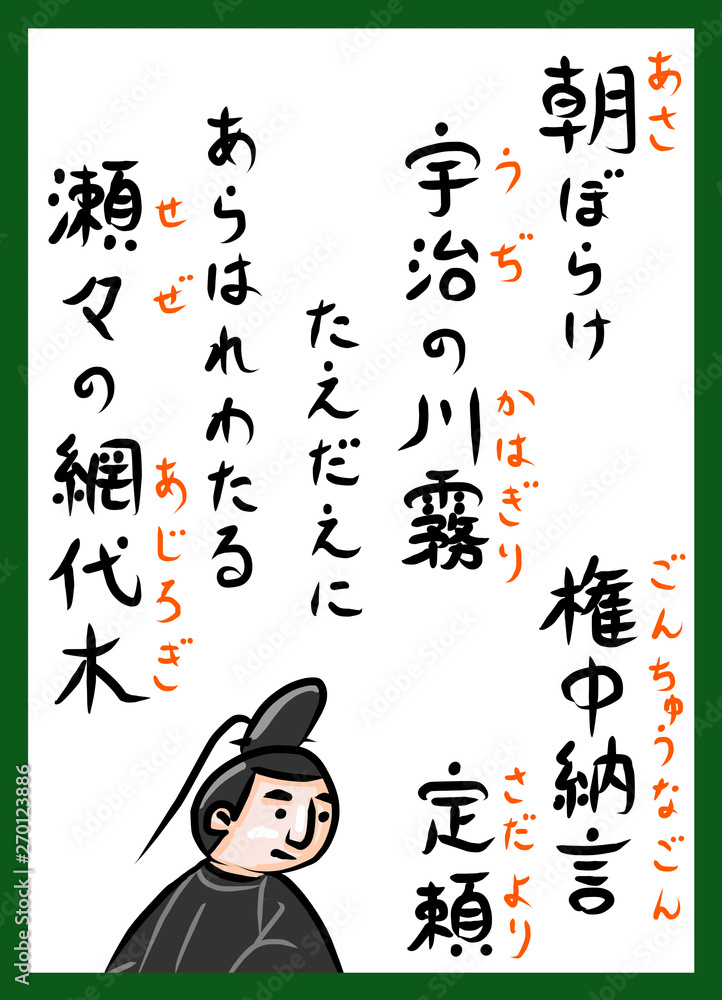 朝ぼらけ
あさ
宇治の川霧
うぢ
かはぎり
たえだえに
あらはれわたる
瀬々の網代木
せぜ
あじろぎ
権中納言
ごんちゅうなごん
定頼
さだより
Adobe Stock | #270123886